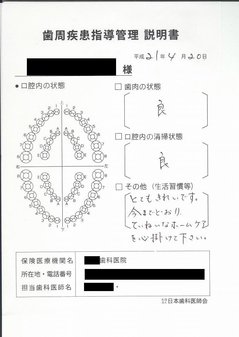 歯周疾患指導管理 説明書
平成21年4月20日
様
●口腔内の状態
□歯肉の状態
良
□口腔内の清掃状態
良
□その他（生活習慣等）
とてもきれいです。
今までどおり
ていねいなホームケア
を心掛けて下さい。
保険医療機関名
歯科医院
所在地・電話番号
担当歯科医師名
日本歯科医師会